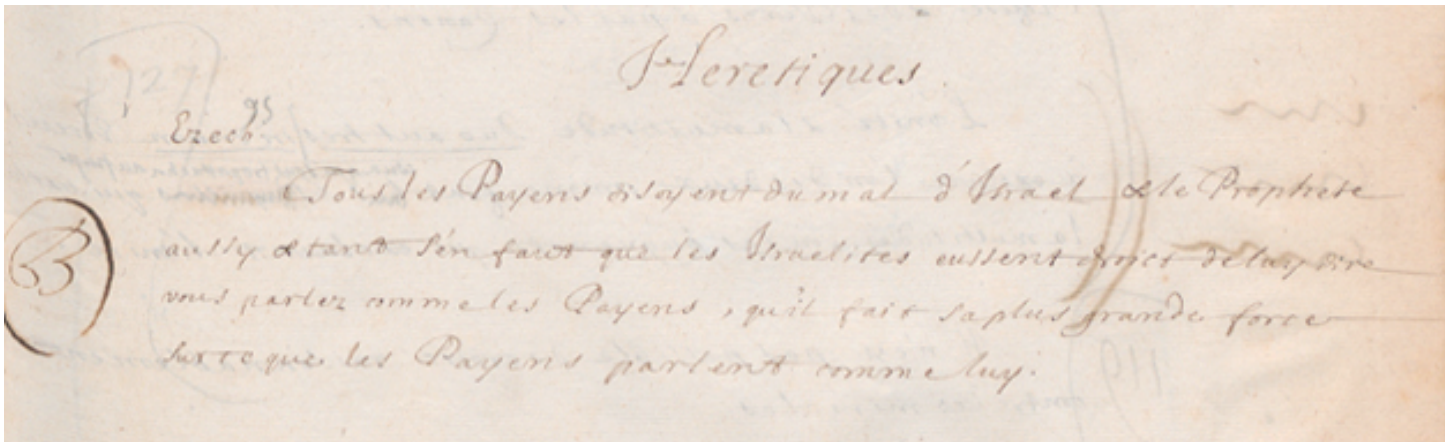 Heretiques
Ezech
Tous les Payens disoyent du mal d'Israel & le Prophete
aussy & tant s'en faut que les Israelites eussent droict de luy dire
vous parlez comme les Payens, qu'il fait sa plus grande force
sur ce que les Payens parlent comme luy.
B